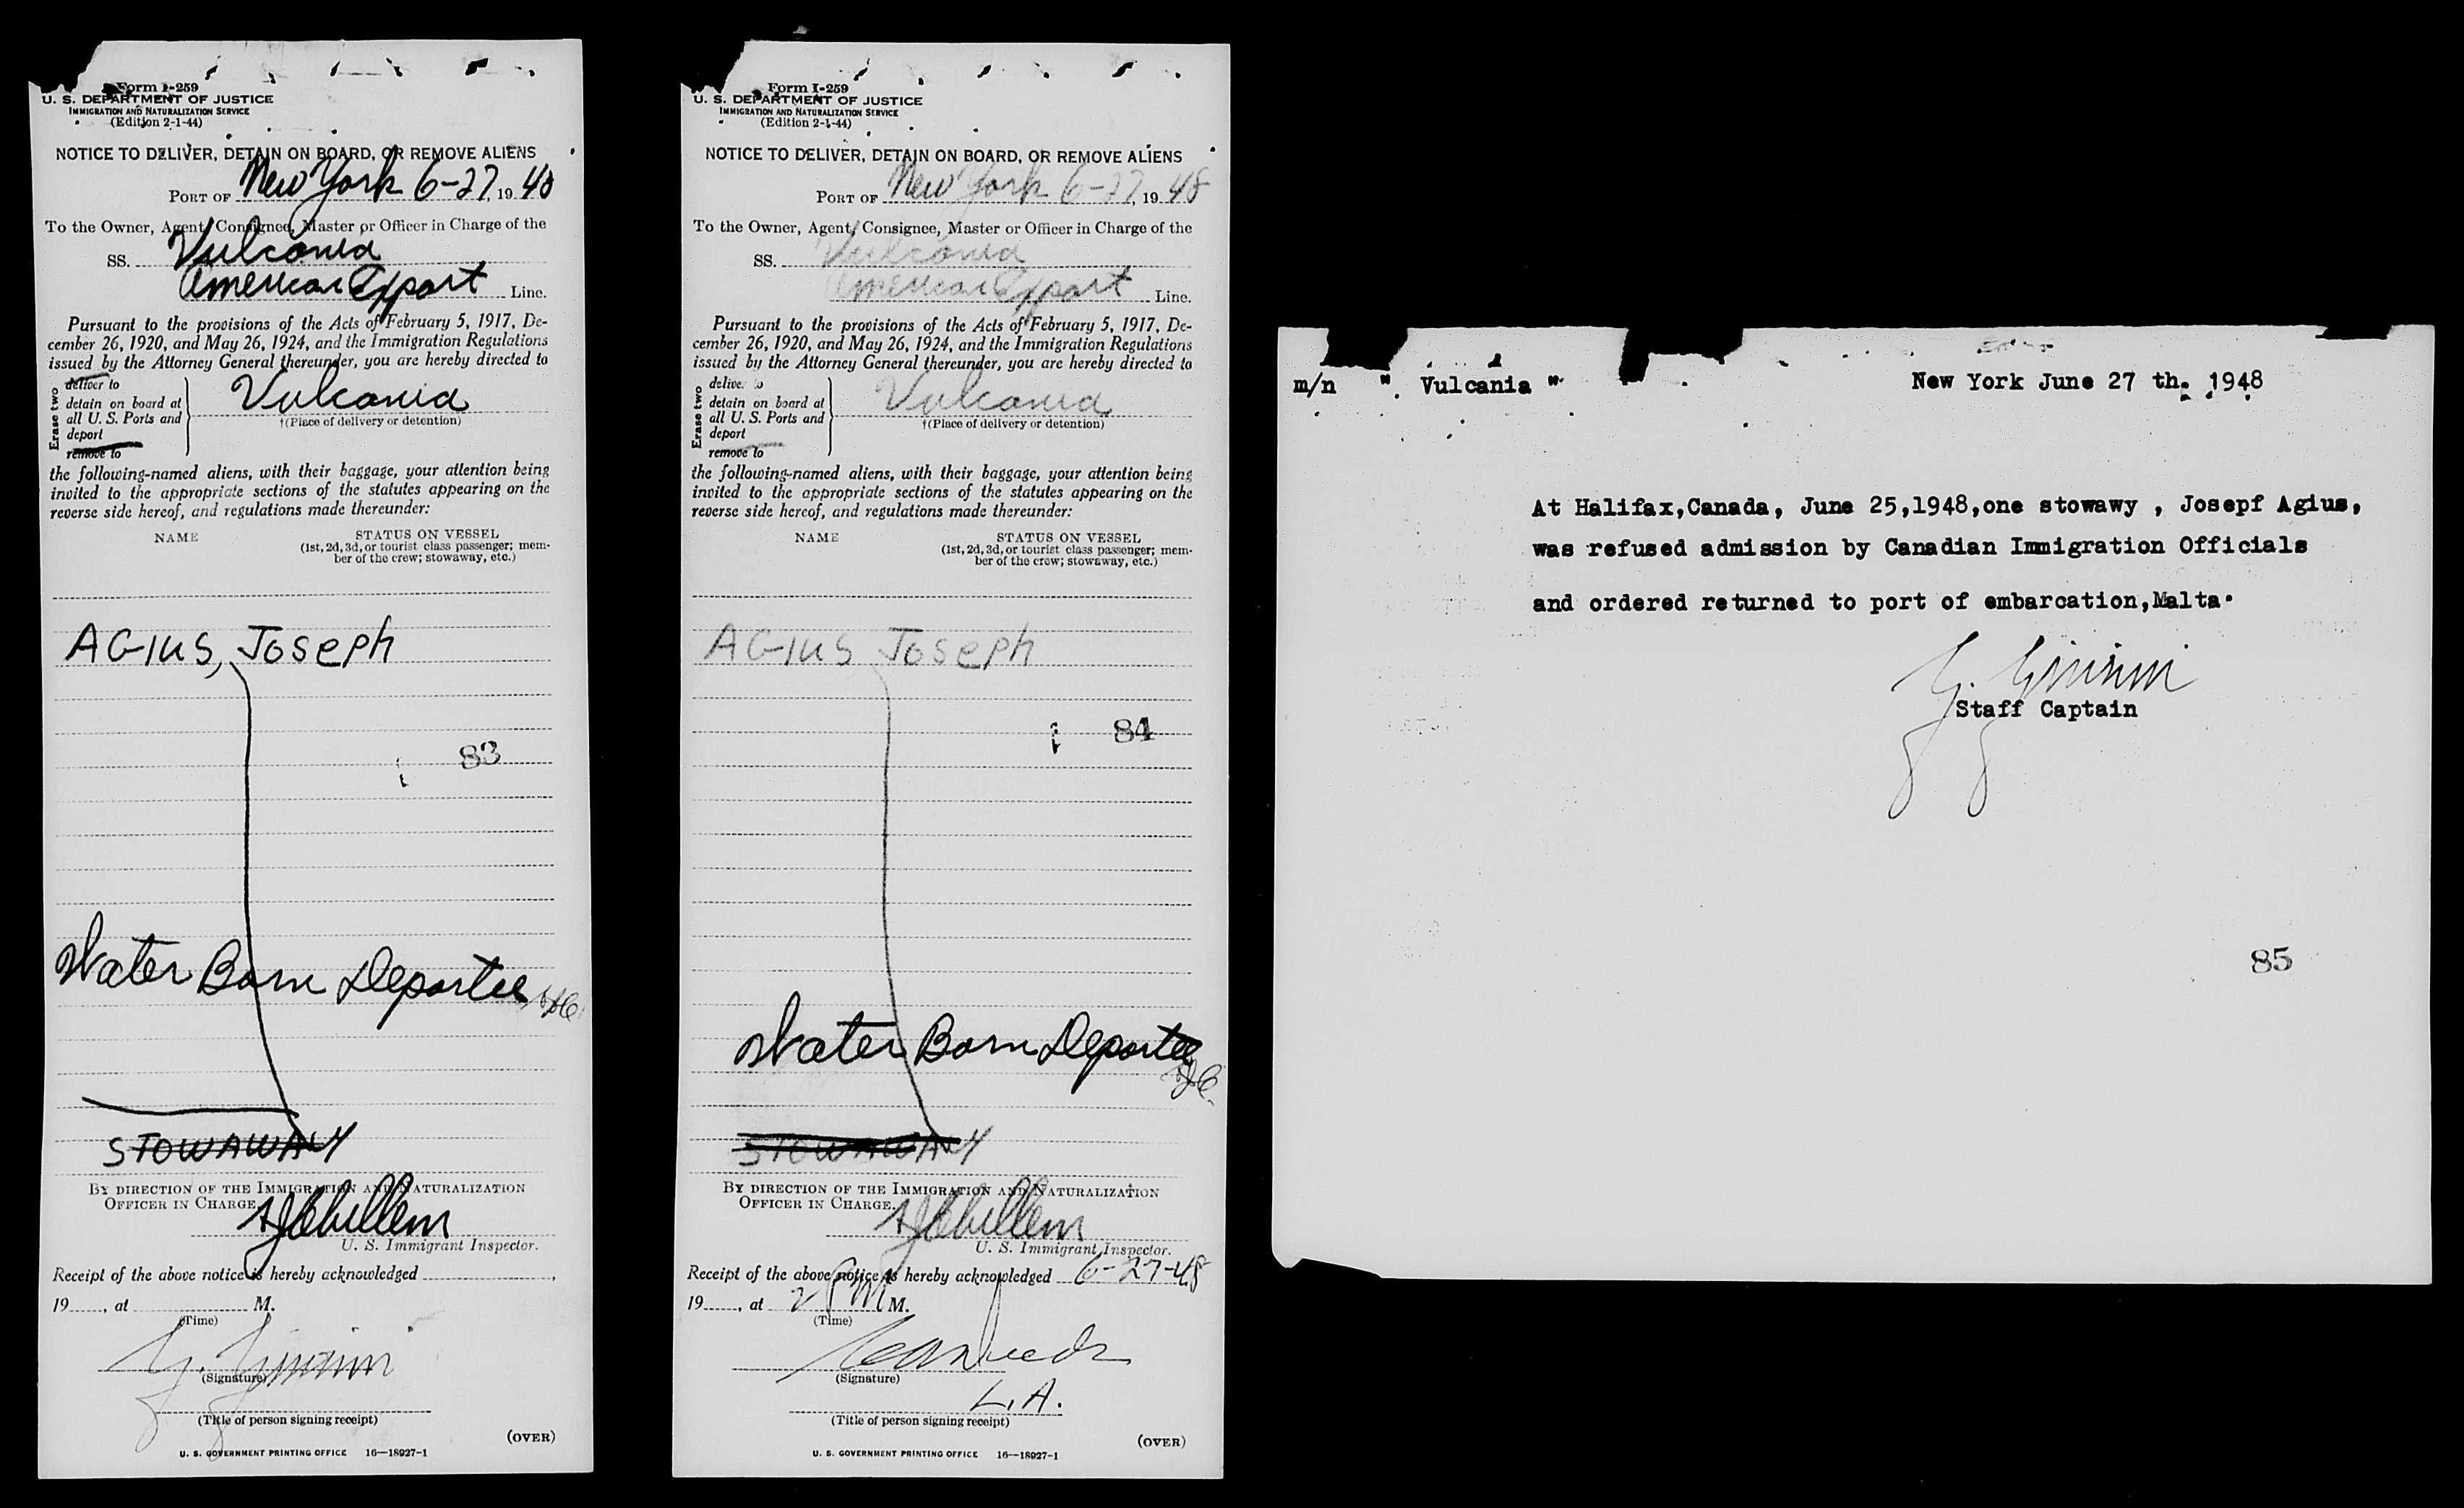 Form I-259
U. S. DEPARTMENT OF JUSTICE
IMMIGRATION AND NATURALIZATION SERVICE
(Edition 2-1-44)
NOTICE TO DELIVER, DETAIN ON BOARD, OR REMOVE ALIENS
PORT OF New York 6-27, 19 48
To the Owner, Agent, Consignee, Master or Officer in Charge of the
SS. Vulcania
American Export Line.
Pursuant to the provisions of the Acts of February 5, 1917, De-
cember 26, 1920, and May 26, 1924, and the Immigration Regulations
issued by the Attorney General thereunder, you are hereby directed to
Erase two
deliver to
detain on board at
all U. S. Ports and
deport
remove to
Vulcania
†(Place of delivery or detention)
the following-named aliens, with their baggage, your attention being
invited to the appropriate sections of the statutes appearing on the
reverse side hereof, and regulations made thereunder:
NAME STATUS ON VESSEL
(1st, 2d, 3d, or tourist class passenger; mem-
ber of the crew; stowaway, etc.)
AGIUS, Joseph
83
Water Born Deportee
STOWAWAY
BY DIRECTION OF THE IMMIGRATION AND NATURALIZATION
OFFICER IN CHARGE.
U. S. Immigrant Inspector.
Receipt of the above notice is hereby acknowledged ,
19 , at M.
(Time)
(Signature)
(Title of person signing receipt)
(OVER)
U. S. GOVERNMENT PRINTING OFFICE 16—18927-1
Form I-259
U. S. DEPARTMENT OF JUSTICE
IMMIGRATION AND NATURALIZATION SERVICE
(Edition 2-1-44)
NOTICE TO DELIVER, DETAIN ON BOARD, OR REMOVE ALIENS
PORT OF New York 6-27, 19 48
To the Owner, Agent, Consignee, Master or Officer in Charge of the
SS. Vulcania
American Export Line.
Pursuant to the provisions of the Acts of February 5, 1917, De-
cember 26, 1920, and May 26, 1924, and the Immigration Regulations
issued by the Attorney General thereunder, you are hereby directed to
Erase two
deliver to
detain on board at
all U. S. Ports and
deport
remove to
Vulcania
†(Place of delivery or detention)
the following-named aliens, with their baggage, your attention being
invited to the appropriate sections of the statutes appearing on the
reverse side hereof, and regulations made thereunder:
NAME STATUS ON VESSEL
(1st, 2d, 3d, or tourist class passenger; mem-
ber of the crew; stowaway, etc.)
AGIUS Joseph
84
Water Born Deportee
STOWAWAY
BY DIRECTION OF THE IMMIGRATION AND NATURALIZATION
OFFICER IN CHARGE.
U. S. Immigrant Inspector.
Receipt of the above notice is hereby acknowledged 6-27-48
19 , at 2 PM M.
(Time)
(Signature)
L.A.
(Title of person signing receipt)
(OVER)
U. S. GOVERNMENT PRINTING OFFICE 16—18927-1
m/n " Vulcania " New York June 27 th. 1948
At Halifax,Canada, June 25,1948,one stowawy , Josepf Agius,
was refused admission by Canadian Immigration Officials
and ordered returned to port of embarcation,Malta.
Staff Captain
85